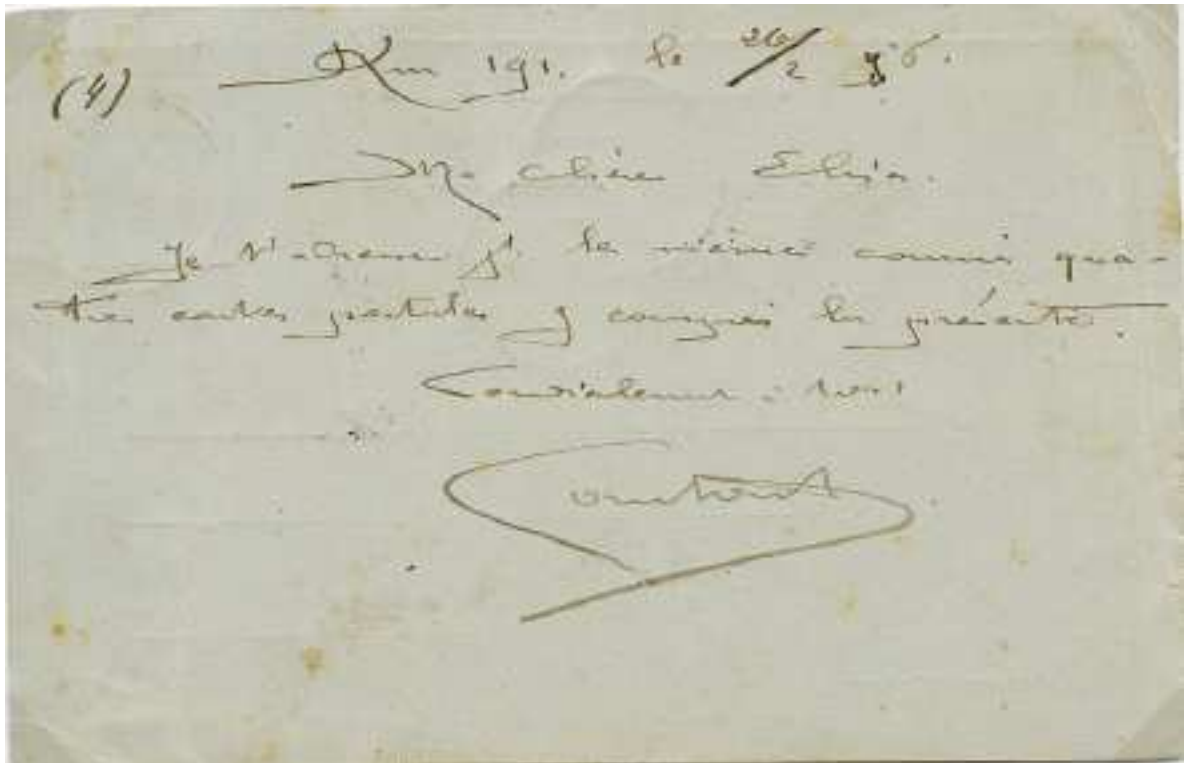 (4) Km 191. le 26/2 96.
Ma chère Elisa.
Je t'adresse pr le même courrier qua-
tre cartes postales y compris la présente.
Cordialement à toi
Constant